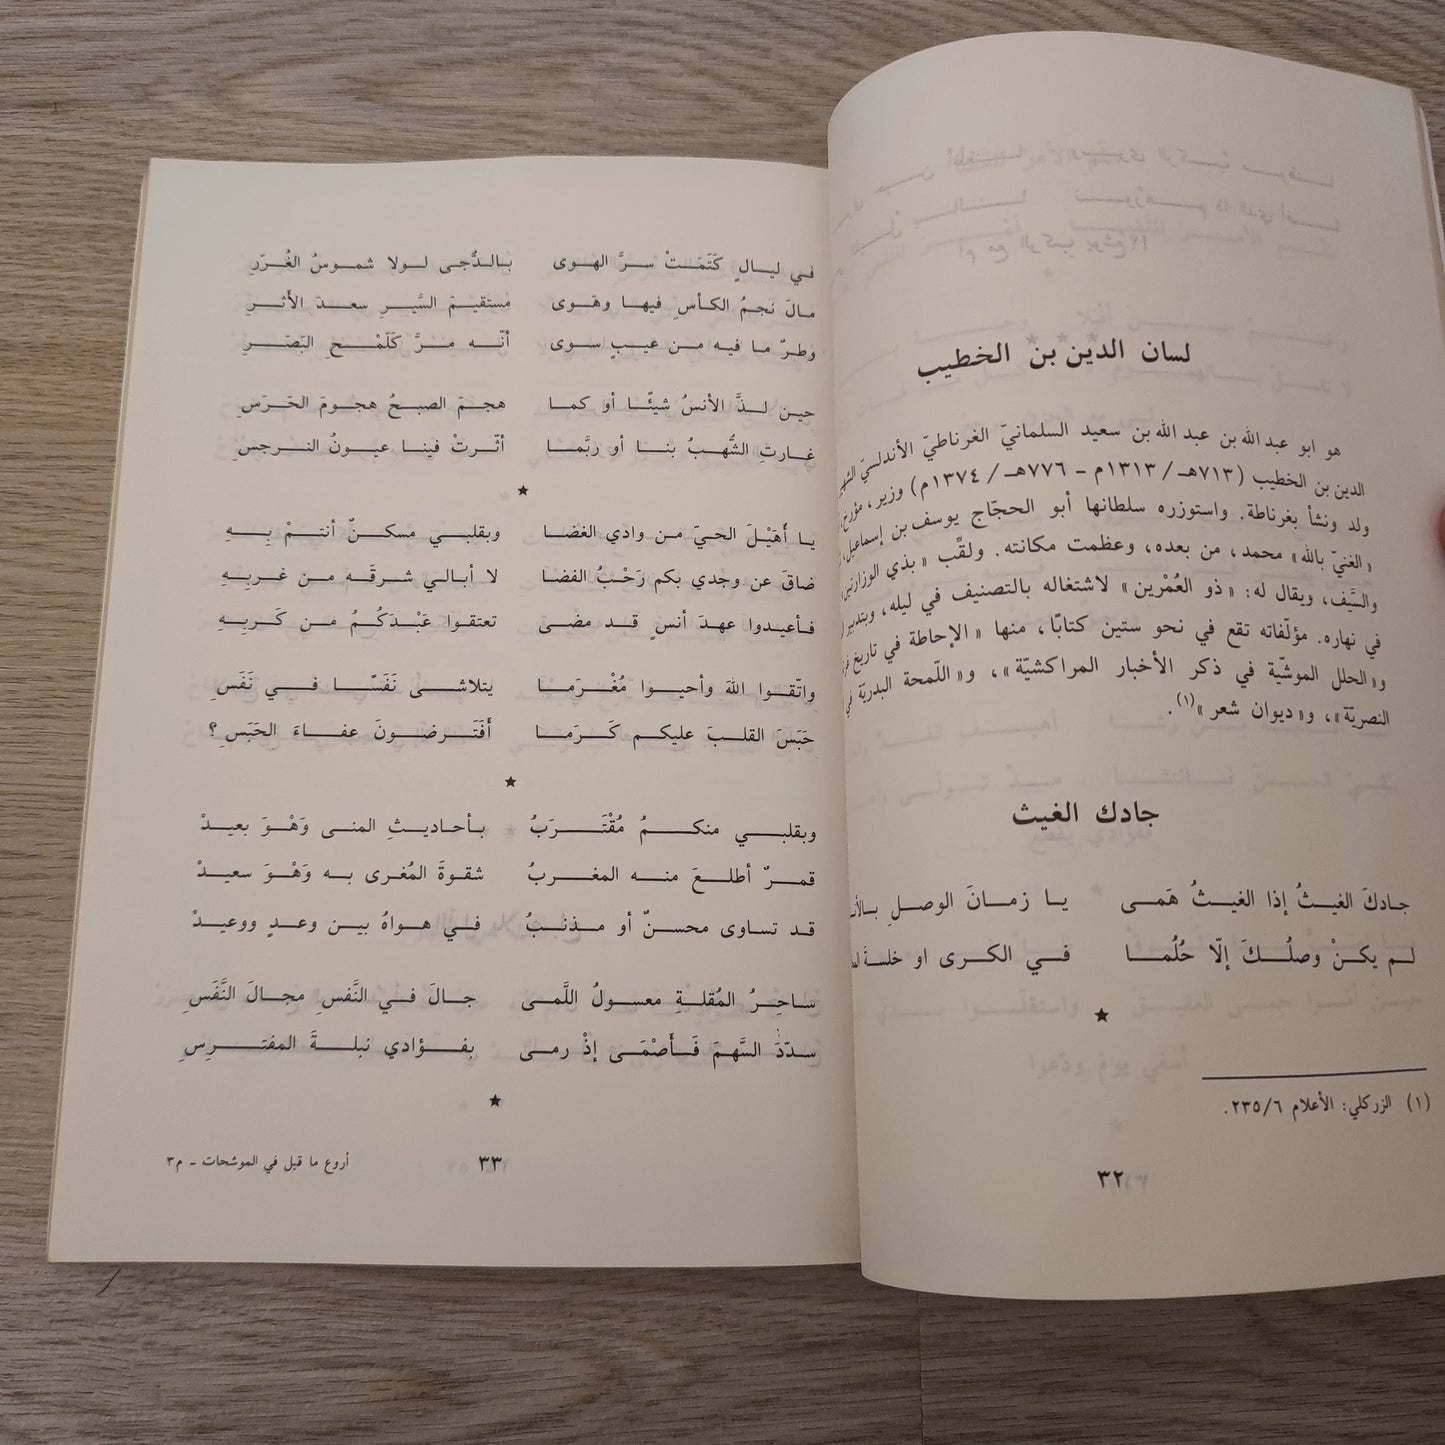 لسان الدين بن الخطيب
هو ابو عبد الله بن عبد الله بن سعيد السلمانيّ الغرناطيّ الأندلسيّ
الدين بن الخطيب (٧١٣هـ/١٣١٣م - ٧٧٦هـ/١٣٧٤م) وزير، مؤرخ
ولد ونشأ بغرناطة. واستوزره سلطانها أبو الحجّاج يوسف بن إسماعيل
«الغنيّ بالله» محمد، من بعده، وعظمت مكانته. ولقّب «بذي الوزارتين
والسَّيف، ويقال له: «ذو العُمْرين» لاشتغاله بالتصنيف في ليله، وبتدبير
في نهاره. مؤلّفاته تقع في نحو ستين كتابًا، منها «الإحاطة في تاريخ
و«الحلل الموشيّة في ذكر الأخبار المراكشيّة»، و«اللّمحة البدريّة في
النصريّة»، و«ديوان شعر»(١).
جادك الغيث
جادكَ الغيثُ إذا الغيثُ هَمى يا زمانَ الوصلِ
لم يكنْ وصلُكَ إلّا حُلُما في الكرى او خلسةَ
★
(١) الزركلي: الأعلام ٢٣٥/٦.
٣٢
في ليالٍ كَتَمَتْ سرَّ الهوى بالدُّجى لولا شموسُ الغُرَرِ
مالَ نجمُ الكأسِ فيها وهَوى مستقيمَ السَّيرِ سعدَ الأَثرِ
وطرٌ ما فيه من عيبٍ سوى أنّه مرَّ كَلَمْحِ البَصَرِ
حين لذَّ الأنسُ شيئًا أو كما هجمَ الصبحُ هجومَ الحَرَسِ
غارتِ الشُّهبُ بنا أو ربَّما أثّرتْ فينا عيونُ النرجسِ
★
يا أُهَيْلَ الحيّ من وادي الغضا وبقلبي مسكنٌ أنتمْ بِهِ
ضاقَ عن وجدي بكم رَحْبُ الفضا لا أبالي شرقَه من غربِهِ
فأعيدوا عهدَ أنسٍ قد مضى تعتقوا عَبْدَكُمُ من كَربِهِ
واتّقوا اللهَ وأحيوا مُغْرَما يتلاشى نَفَسًا في نَفَسِ
حَبَسَ القلبَ عليكم كَرَما أَفَتَرضونَ عفاءَ الحَبَسِ؟
★
وبقلبي منكمُ مُقْتَرَبُ بأحاديثِ المنى وَهْوَ بعيدْ
قمرٌ أطلعَ منه المغربُ شقوةَ المُغرى به وَهْوَ سعيدْ
قد تساوى محسنٌ أو مذنبُ في هواهُ بين وعدٍ ووعيدْ
ساحِرُ المُقلةِ معسولُ اللَّمى جالَ في النَّفسِ مجالَ النَّفَسِ
سدّدَ السَّهمَ فَأَصْمَى إذْ رمى بفؤادي نبلةَ المفترِسِ
★
٣٣
أروع ما قيل في الموشحات - م٣